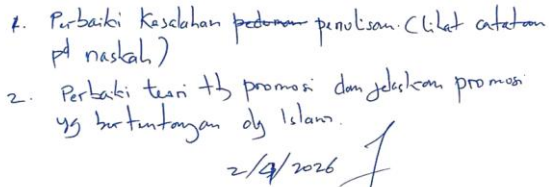 1. Perbaiki Kesalahan pedoman penulisan. (lihat catatan
pd naskah)
2. Perbaiki teori ttg promosi dan jelaskan promosi
yg bertentangan dg Islam.
2/4/2026